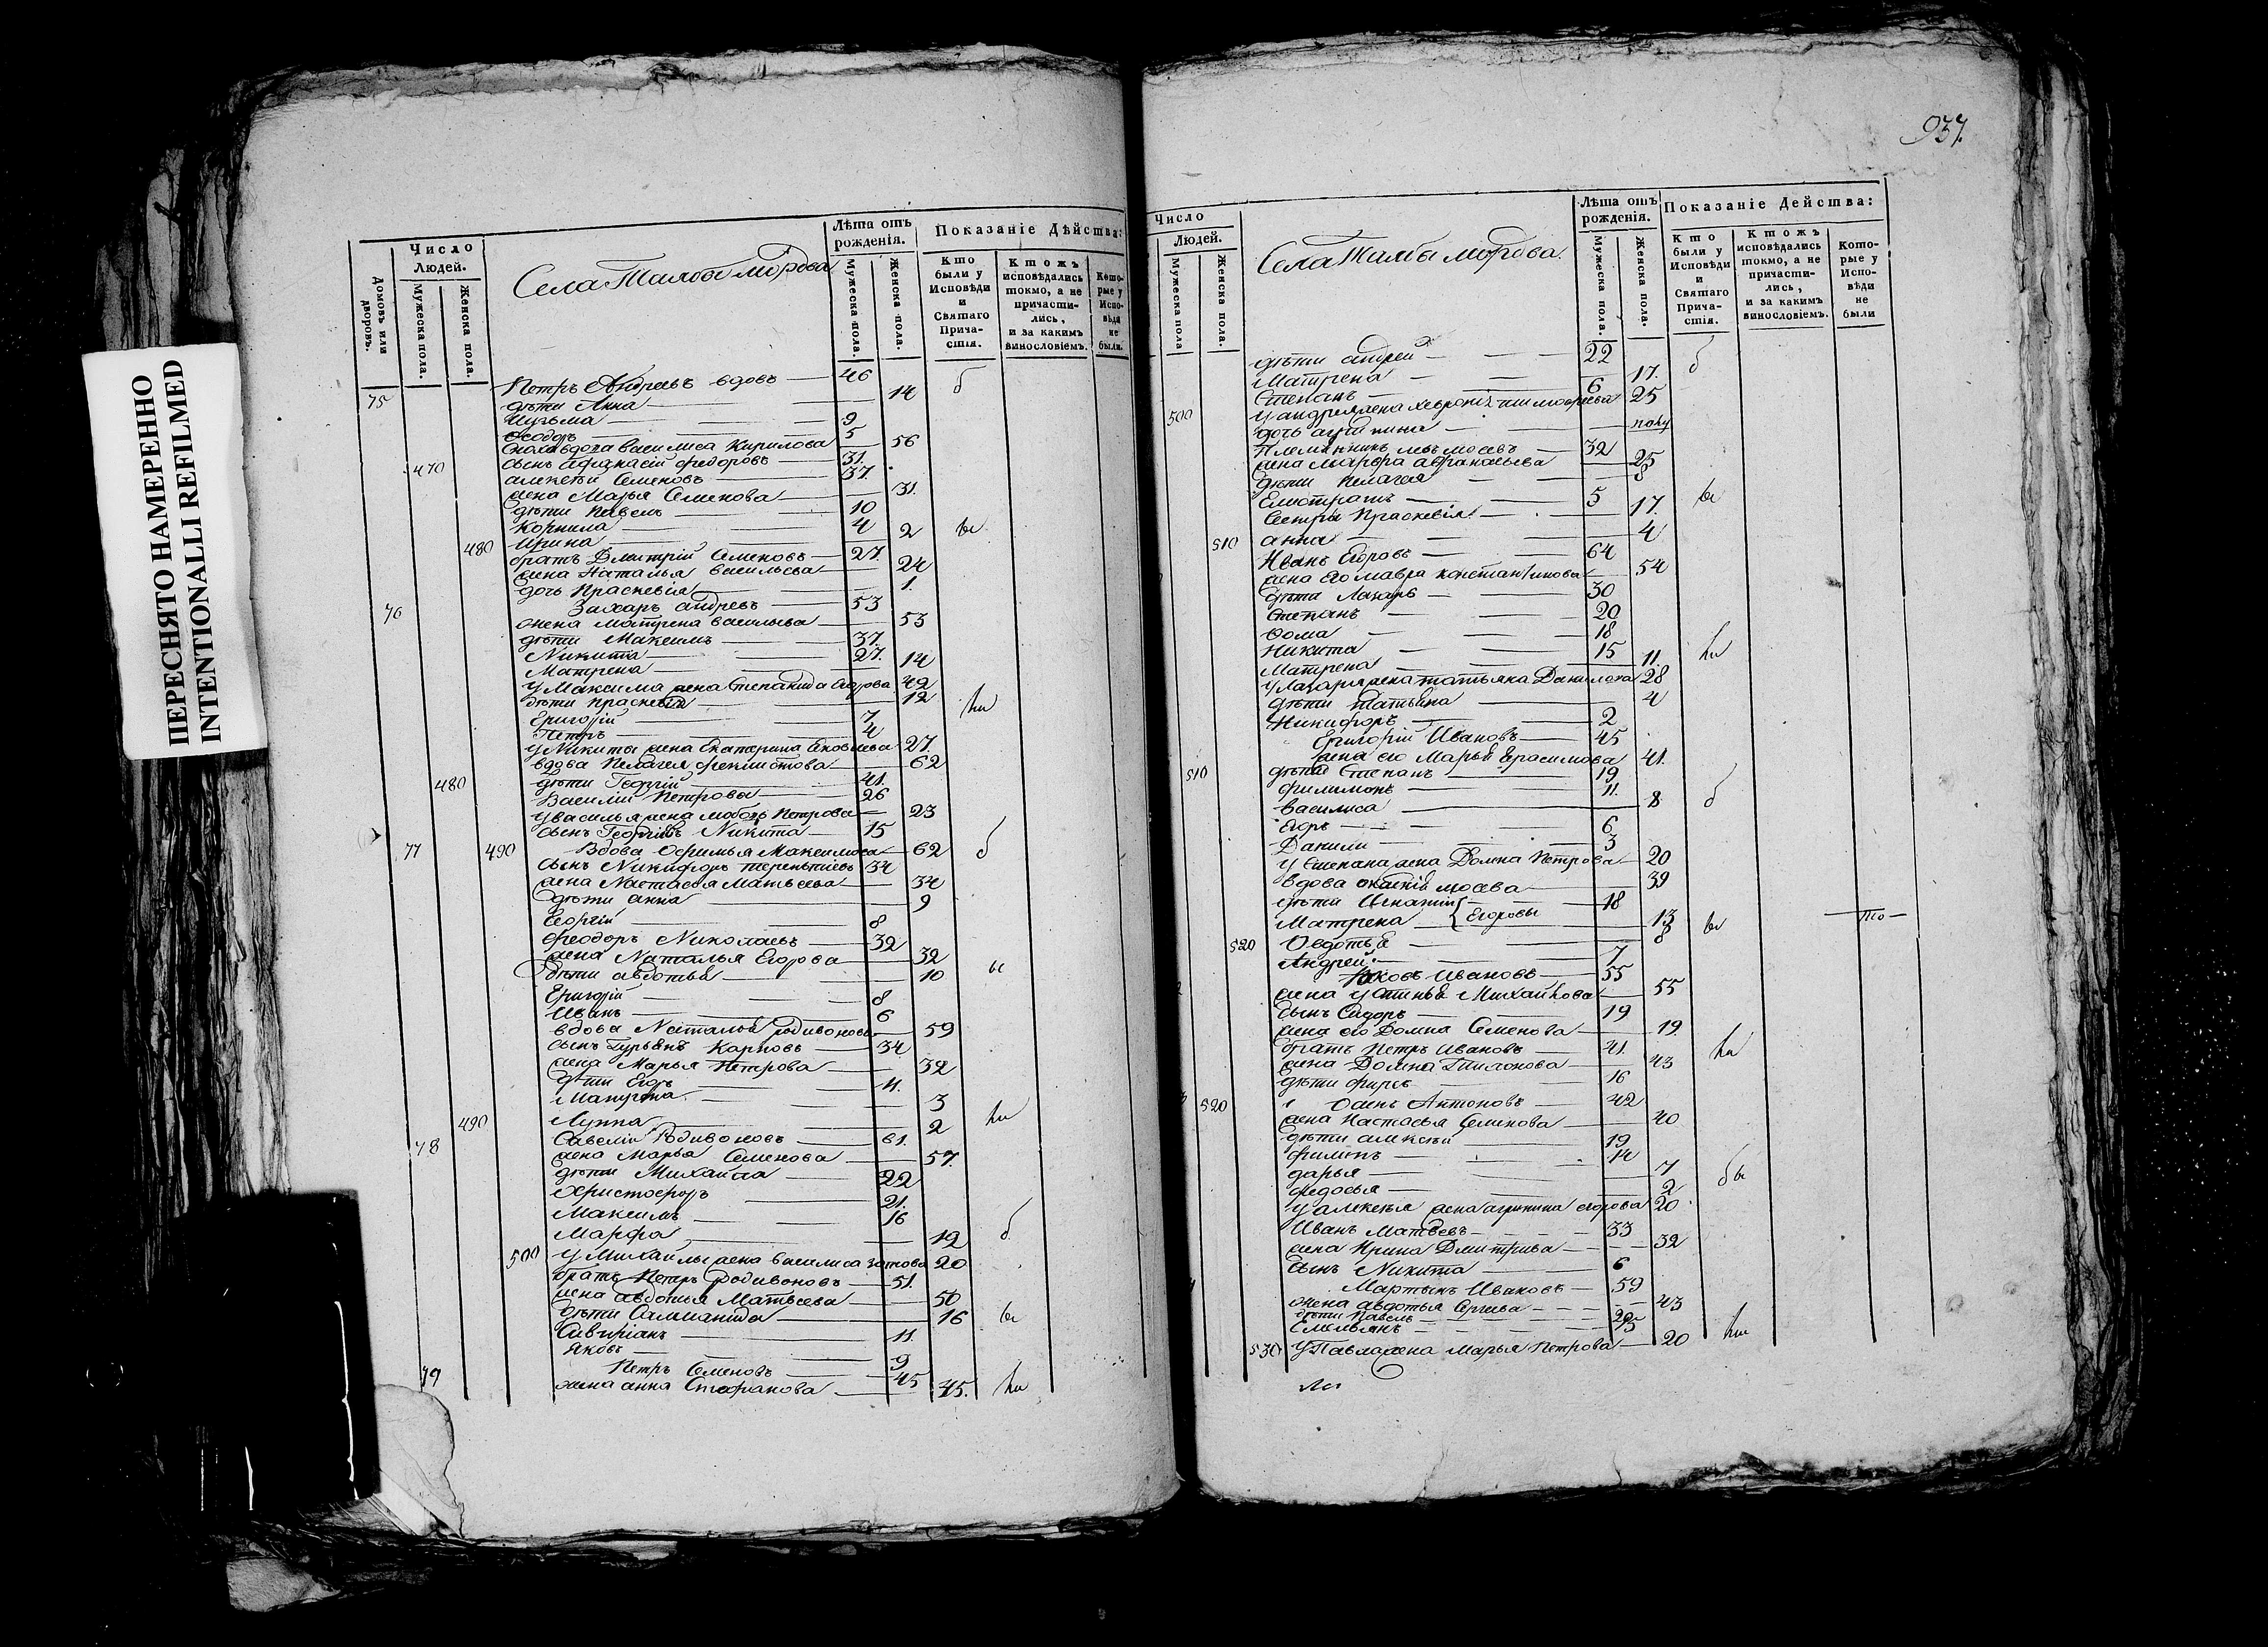 ПЕРЕСНЯТО НАМЕРЕННО
INTENTIONALLI REFILMED
937.
Домовъ или дворовъ.
Число Людей.
Мужеска пола.
Женска пола.
Села Талбы мордва
Лѣта отъ рожденія.
Мужеска пола.
Женска пола.
Показаніе Дѣйства:
Кто были у Исповѣди и Святаго Прича-стія.
Ктожъ исповѣдались токмо, а не причасти-лись, и за какимъ винословіемъ.
Кото-рые у Испо-вѣди не были.
75 Петръ Андреевъ вдовъ 46 б
дѣти Анна 14
Кузьма 9
Феодоръ 5
вдова василиса Кирилова 56
470 сынъ Афанасій федоровъ 31.
алексѣй Семеновъ 37.
жена Марья Семенова 31.
дѣти Павелъ 10
Корнила 4
480 Ирина 2 вы
братъ Дмитрій Семеновъ 27.
жена Наталья васильева 24
дочь Прасковія 1.
76 Захаръ андревъ 53
жена матрена васильева 53
дѣти Максимъ 37.
Никита 27.
Матрена 14
у Максима жена Степанида Егорова 42
дѣти прасковія 12
Григорій 7 ли
Петръ 4
у Никиты жена Екатерина Яковлева 27.
вдова Пелагея феклистова 62
480 дѣти Георгій 41.
Василій Петровы 26
у василья жена любовь Петрова 23
сынъ Георгіевъ Никита 15
77 490 Вдова Офимья Максимова 62 б
сынъ Никифоръ терентьевъ 34
жена Настасья Матвеева 34
дѣти анна 9
Георгій 8
Феодоръ Николаевъ 32
жена Наталья Егорова 32
дѣти авдотья 10 вы
Григорій 8
Иванъ 6
вдова Наталья родивонова 59
сынъ Гурьянъ Карповъ 34
жена Марья Петрова 32
дѣти Егоръ 11.
Матрена 3
490 Луппа 2 ли
78 Савелій Родивоновъ 61.
жена Марья Семенова 57.
дѣти Михайла 22
Христофоръ 21.
Максимъ 16
Марфа 19 б
500 у Михайлы жена василиса зотова 20
братъ Петръ родивоновъ 51.
жена авдотья Матвеева 50
дѣти Саламанида 16 вы
Сивиріанъ 11.
Яковъ 9
79 Петръ Семеновъ 45
жена анна Стефанова 45. ли
Число Людей.
Мужеска пола
Женска пола.
Села Талбы мордва.
Лѣта отъ рожденія.
Мужеска пола.
Женска пола.
Показаніе Дейсшва:
Кто были у Исповѣди и Святаго Прича-стія.
Ктожъ исповѣдались токмо, а не причасти-лись, и за какимъ винословіемъ.
Кото-рые у Испо-вѣди не были
дѣти андрей 22 б
Матрена 17.
Степанъ 6
500 у андрея жена хевронія тимофеева 25
дочь агрипина полу
Племянникъ левъ мосевъ 32
жена марфа афанасьева 25
дѣти Пелагея 8
Елистратъ 5 вы
Сестры Прасковія 17.
510 анна 4
Иванъ Егоровъ 64
жена его мавра константинова 54
дѣти Лазарь 30
Степанъ 20
Фома 18
Никита 15 ли
Матрена 11.
у Лазаря жена татьяна Данилова 28
дѣти татьяна 4
Никифоръ 2
Григорій Ивановъ 45
жена его Марья Герасимова 41.
510 дѣти Степанъ 19
филимонъ 11.
василиса 8 б
Егоръ 6
Данили 3
у Степана жена Домна Петрова 20
вдова моева 39
дѣти Игнатій 18
Матрена Егоровы 13 вы —то—
520 Овдотья 8
Андрей 7
Яковъ Ивановъ 55
жена устинья Михайлова 55
сынъ Сидоръ 19
жена его Домна Семенова 19.
братъ Петръ Ивановъ 41. ли
жена Домна Тихонова 43
дѣти фирсъ 16
520 Осипъ Антоновъ 42
жена Настасья Семенова 40
дѣти алексѣй 19
филипъ 14
дарья 7 бы
федосья 2
у алексѣя жена агрипина егорова 20
Иванъ Матвеевъ 33
жена Ирина Дмитрева 32
сынъ Никита 6
Мартынъ Ивановъ 59
жена авдотья Сергева 43
дѣти Павелъ 22
Емельянъ 5
530 у Павла жена Марья Петрова 20 ли